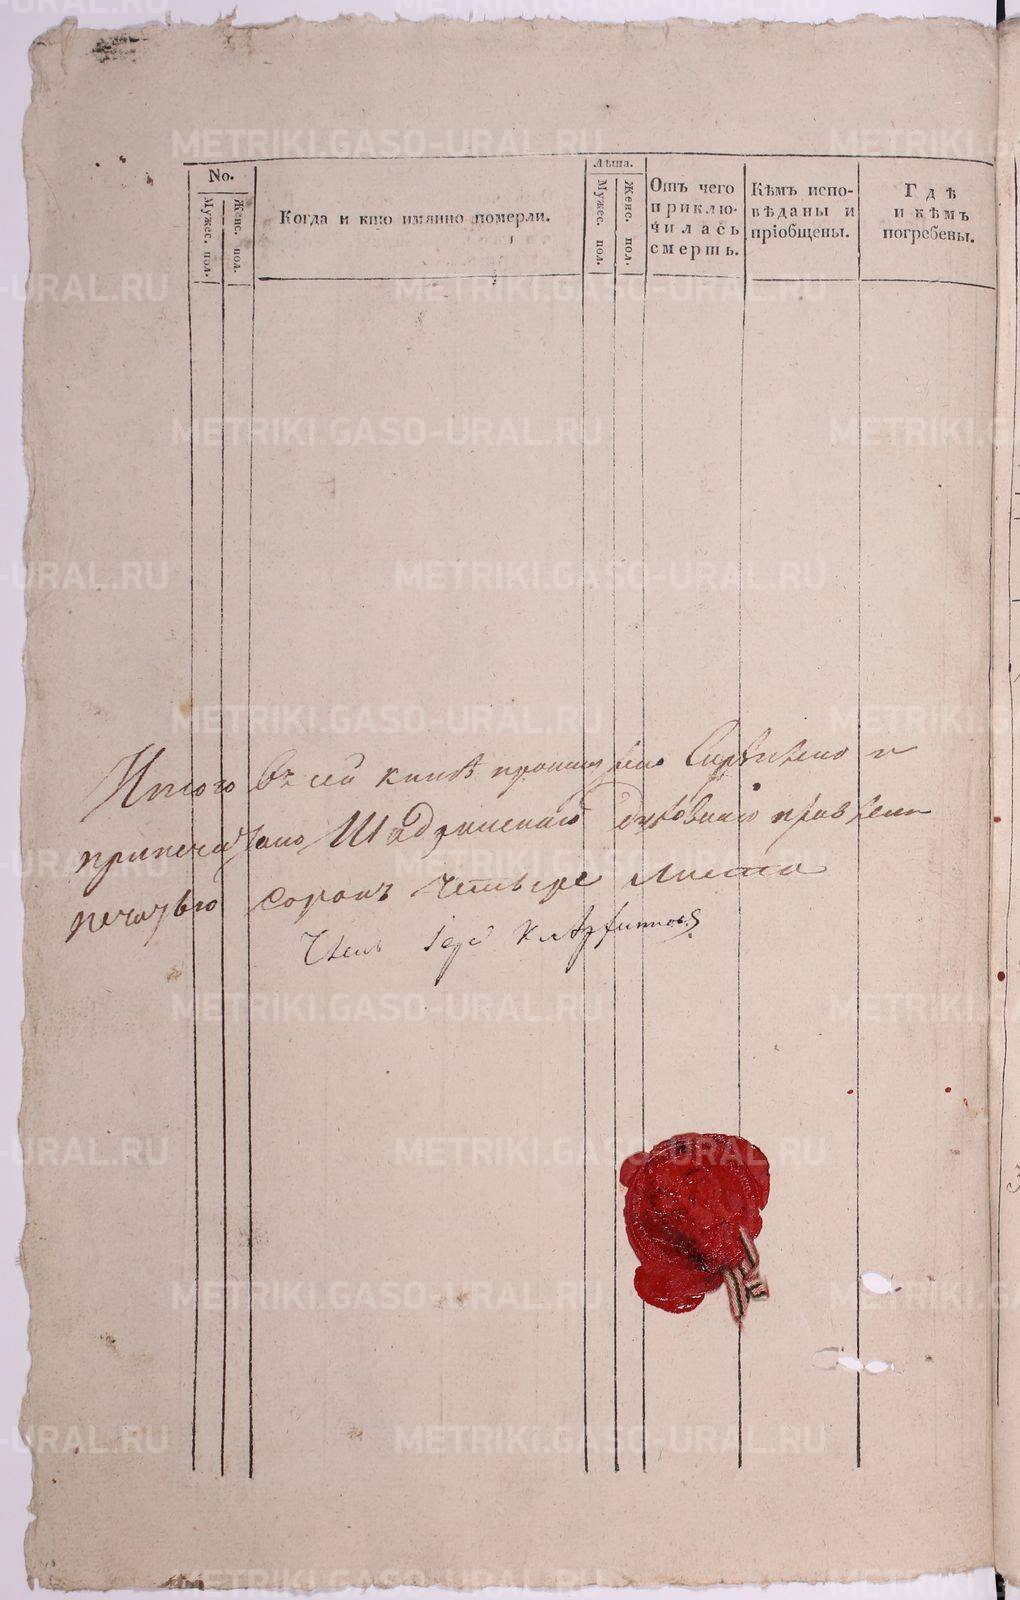 No.
Мужес. пол.
Женс. пол.
Когда и кто имянно померли.
Лѣта.
Мужес. пол.
Женс. пол.
Отъ чего
приклю-
чилась
смерть.
Кѣмъ испо-
вѣданы и
пріобщены.
Гдѣ
и кѣмъ
погребены.
Итого въ сей книгѣ скрѣплено и
припечатано Шадринскаго духовнаго правлен
печатью сорокъ четыре листа
Член Іере
METRIKI.GASO-URAL.RU